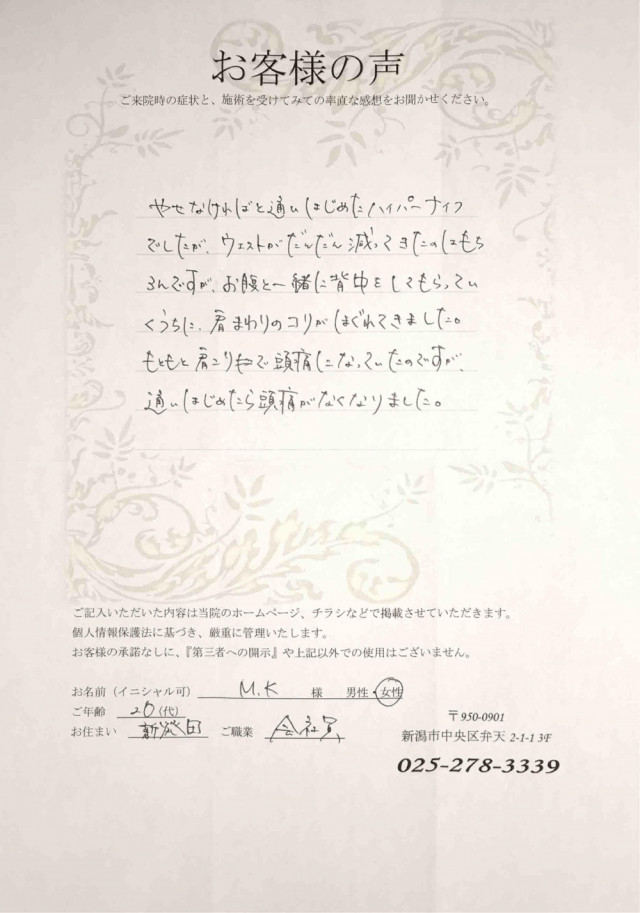 お客様の声
ご来院時の症状と、施術を受けてみての率直な感想をお聞かせください。
やせなければと通いはじめたハイパーナイフ
でしたが、ウエストがだんだん減ってきたのはもち
ろんですが、お腹と一緒に背中をしてもらってい
くうちに、肩まわりのコリがほぐれてきました。
もともと肩こりで頭痛になっていたのですが、
通いはじめたら頭痛がなくなりました。
ご記入いただいた内容は当院のホームページ、チラシなどで掲載させていただきます。
個人情報保護法に基づき、厳重に管理いたします。
お客様の承諾なしに、『第三者への開示』や上記以外での使用はございません。
お名前（イニシャル可） M.K 様 男性・女性
ご年齢 20（代）
お住まい 新発田 ご職業 会社員
〒950-0901
新潟市中央区弁天 2-1-1 3F
025-278-3339